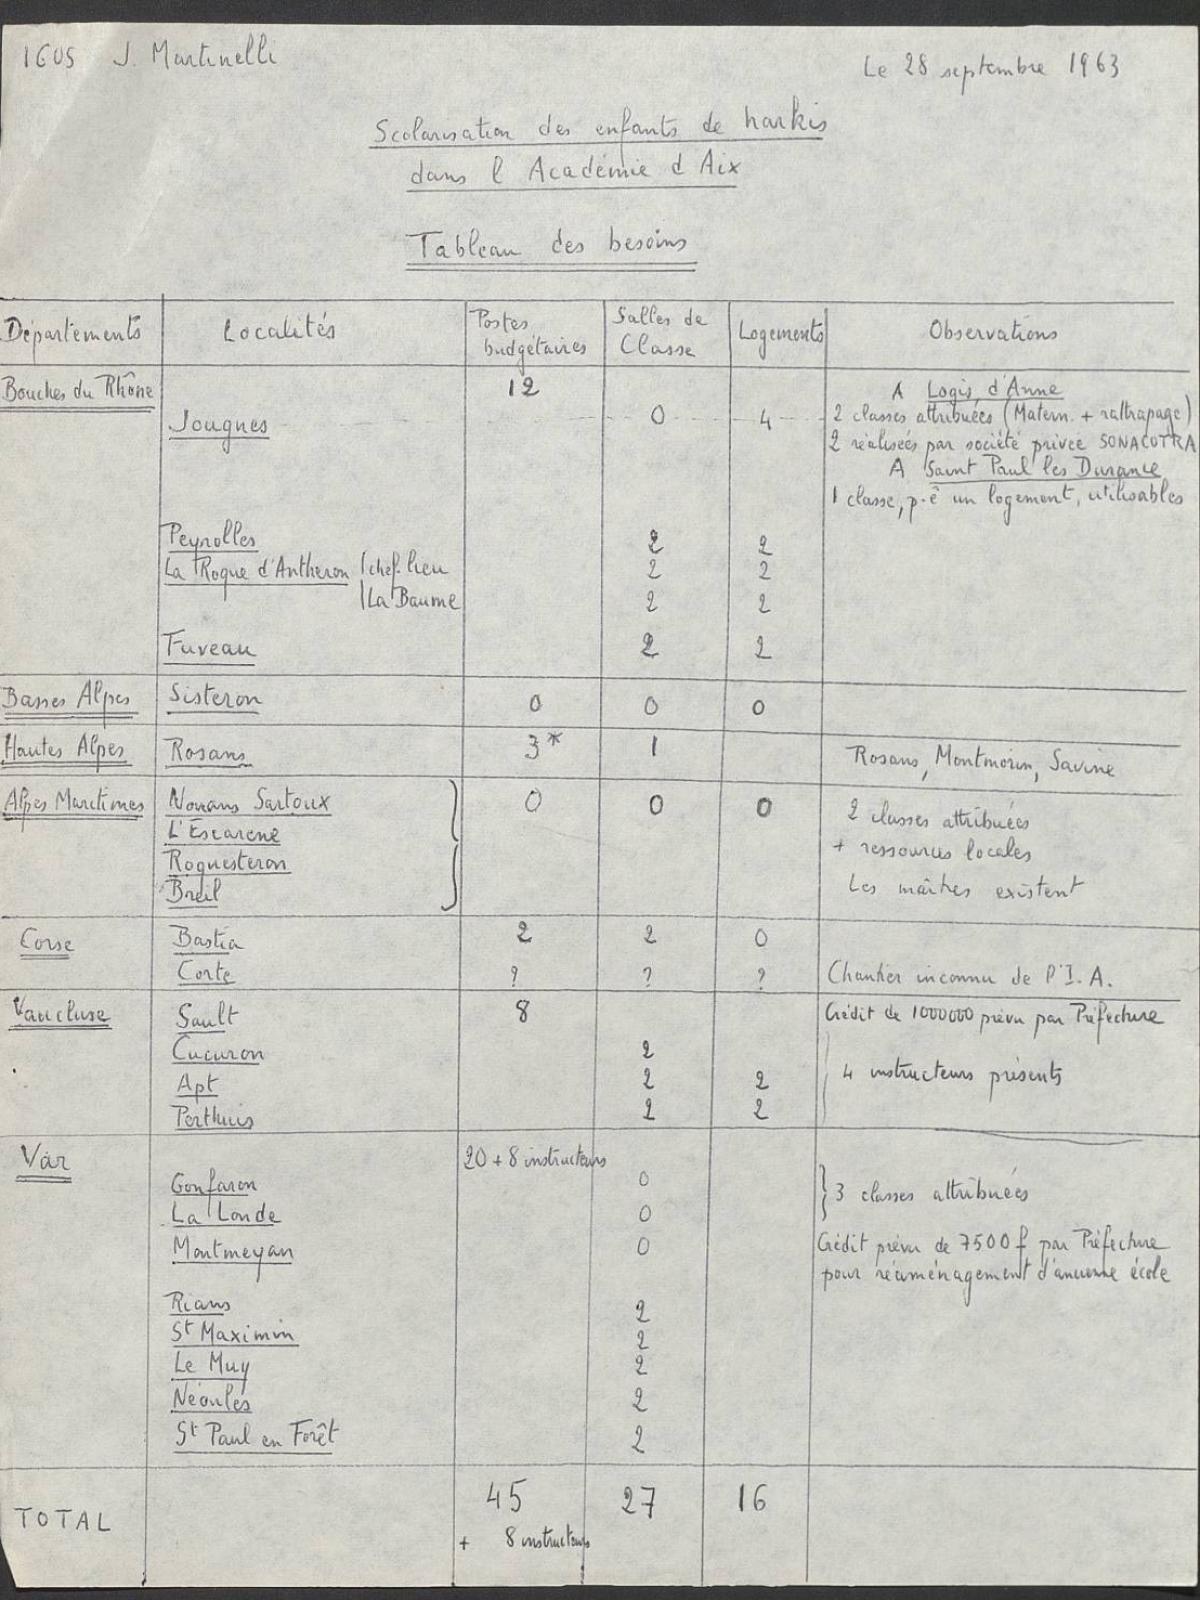 IGUS J. Martinelli
Le 28 septembre 1963
Scolarisation des enfants de harkis
dans l'Académie d'Aix
Tableau des besoins
Départements Localités Postes budgétaires Salles de Classe Logements Observations
Bouches du Rhône 12 A Logis d'Anne
Jougnes 0 4 2 classes attribuées (Matern. + rattrapage)
2 réalisées par société privée SONACOTRA
A Saint Paul les Durance
1 classe, p.ê un logement, utilisables
Peyrolles 2 2
La Roque d'Antheron chef-lieu 2 2
La Baume 2 2
Fuveau 2 2
Basses Alpes Sisteron 0 0 0
Hautes Alpes Rosans 3* 1 Rosans, Montmorin, Savine
Alpes Maritimes Nouans Sartoux 0 0 0 2 classes attribuées
L'Escarene + ressources locales
Roquesteron
Breil Les maîtres existent
Corse Bastia 2 2 0
Corte ? ? ? Chantier inconnu de l'I.A.
Vaucluse Sault 8 Crédit de 1000000 prévu par Préfecture
Cucuron 2
Apt 2 2 4 instructeurs présents
Perthuis 2 2
Var 20 + 8 instructeurs
Gonfaron 0 3 classes attribuées
La Londe 0
Montmeyan 0 Crédit prévu de 7500 f par Préfecture
pour réaménagement d'ancienne école
Rians 2
St Maximin 2
Le Muy 2
Néoules 2
St Paul en Forêt 2
TOTAL 45 27 16
+ 8 instructeurs